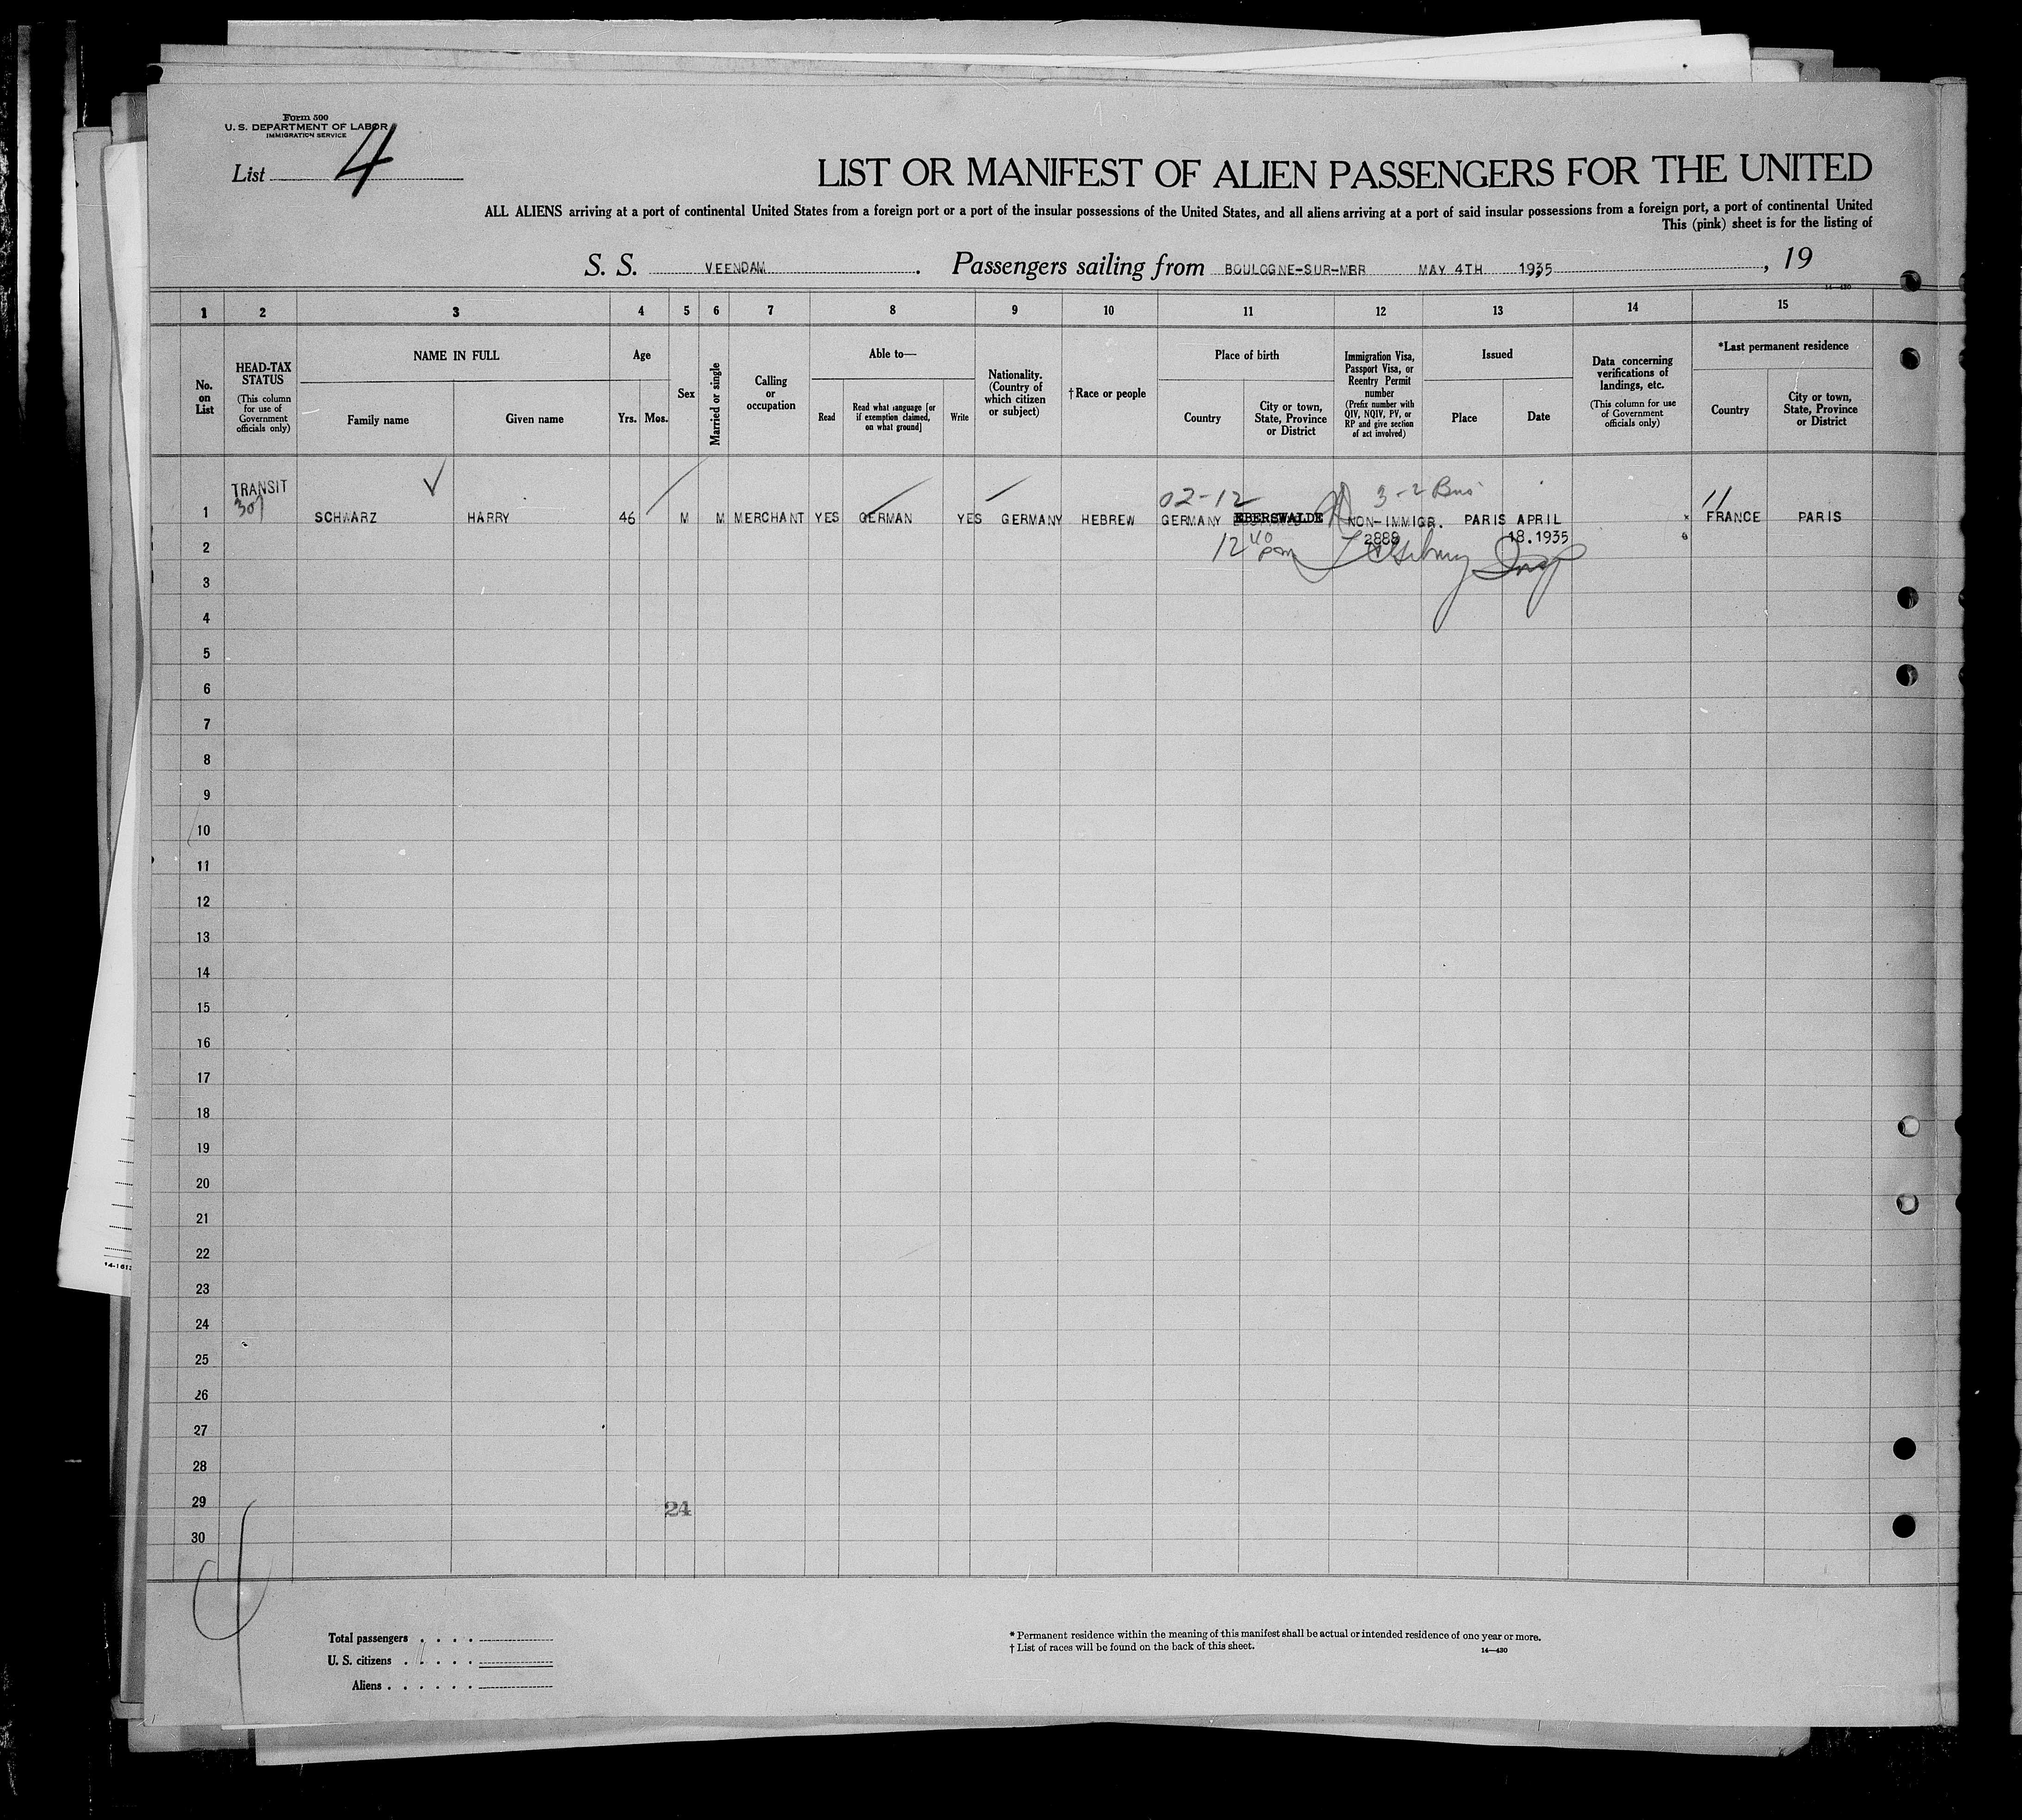 Form 500
U. S. DEPARTMENT OF LABOR
IMMIGRATION SERVICE
List 4
LIST OR MANIFEST OF ALIEN PASSENGERS FOR THE UNITED
ALL ALIENS arriving at a port of continental United States from a foreign port or a port of the insular possessions of the United States, and all aliens arriving at a port of said insular possessions from a foreign port, a port of continental United
This (pink) sheet is for the listing of
S. S. VEENDAM. Passengers sailing from BOULOGNE-SUR-MER MAY 4TH 1935, 19
14-430
1 2 3 4 5 6 7 8 9 10 11 12 13 14 15
No. on List
HEAD-TAX STATUS
(This column for use of Government officials only)
NAME IN FULL
Family name
Given name
Age
Yrs. Mos.
Sex
Married or single
Calling or occupation
Able to—
Read
Read what language [or if exemption claimed, on what ground]
Write
Nationality. (Country of which citizen or subject)
†Race or people
Place of birth
Country
City or town, State, Province or District
Immigration Visa, Passport Visa, or Reentry Permit number
(Prefix number with QIV, NQIV, PV, or RP and give section of act involved)
Issued
Place
Date
Data concerning verifications of landings, etc.
(This column for use of Government officials only)
*Last permanent residence
Country
City or town, State, Province or District
TRANSIT
02-12 3-2 Bus
1 SCHWARZ HARRY 46 M M MERCHANT YES GERMAN YES GERMANY HEBREW GERMANY EBERSWALDE NON-IMMIGR. PARIS APRIL FRANCE PARIS
2888 18.1935
12 40 pm Insp
2
3
4
5
6
7
8
9
10
11
12
13
14
15
16
17
18
19
20
21
22
23
24
25
26
27
28
29
24
30
Total passengers . . . .
U. S. citizens . . . . .
Aliens . . . . . .
* Permanent residence within the meaning of this manifest shall be actual or intended residence of one year or more.
† List of races will be found on the back of this sheet.
14—430